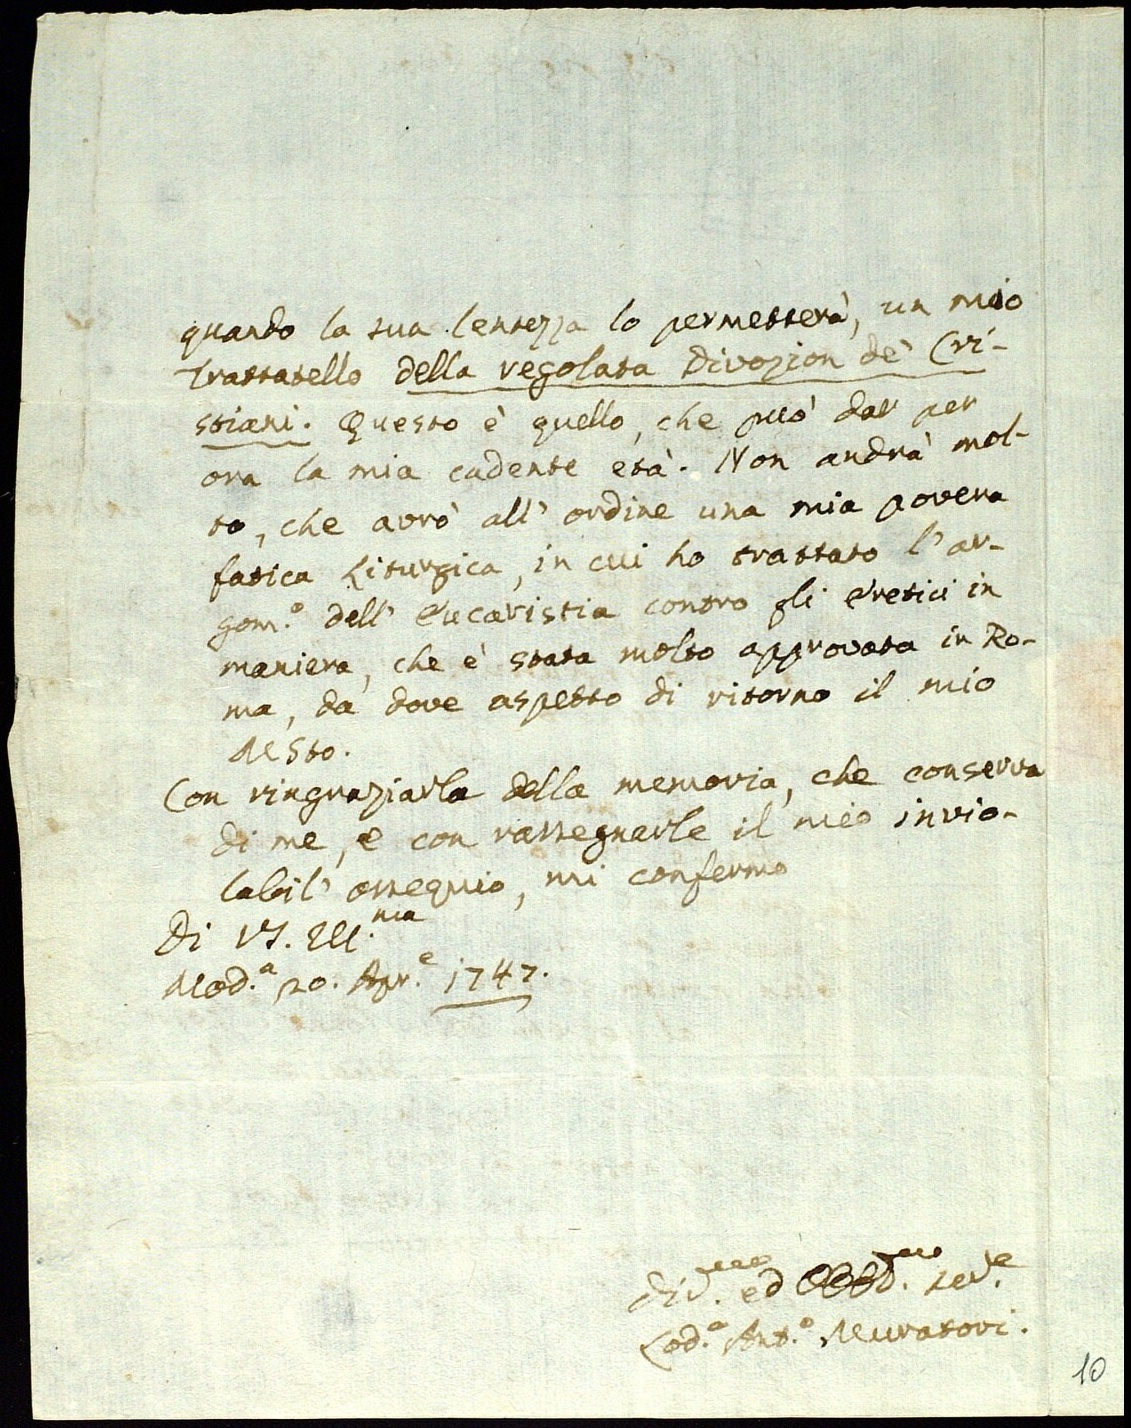 quando la sua lentezza lo permetterà, un mio
Trattatello della regolata Divozion de' Cri-
stiani. Questo è quello, che può dar per
ora la mia cadente età. Non andrà mol-
to, che avrò all' ordine una mia povera
fatica Liturgica, in cui ho trattato l'ar-
gom.º dell' Eucaristia contro gli Eretici in
maniera, che è stata molto approvata in Ro-
ma, da dove aspetto di ritorno il mio
Msto.
Con ringraziarla della memoria, che conserva
di me, e con rassegnarle il mio invio-
labil' ossequio, mi confermo
Di VS. Ill.ma
Mod.a 20. Apr.e 1747.
Div.mo ed Obbd.mo Ser.e
Lod.o Ant.o Muratori.
10